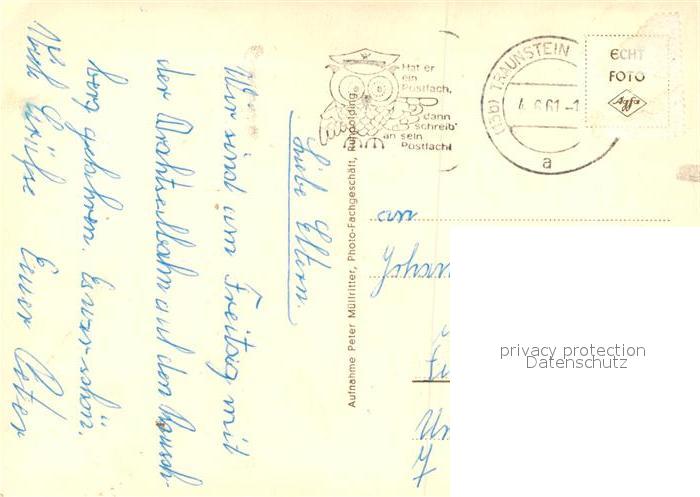 Liebe Eltern.
Wir sind am Freitag mit
der Drahtseilbahn auf den Rausch-
berg gefahren. Es war schön.
Viele Grüße Euer Peter
Aufnahme Peter Müllritter, Photo-Fachgeschäft, Ruhpolding
Hat er
ein
Postfach,
dann
schreib'
an sein
Postfach!
(13b) TRAUNSTEIN
6.61-1
a
ECHT
FOTO
Agfa
an
privacy protection
Datenschutz